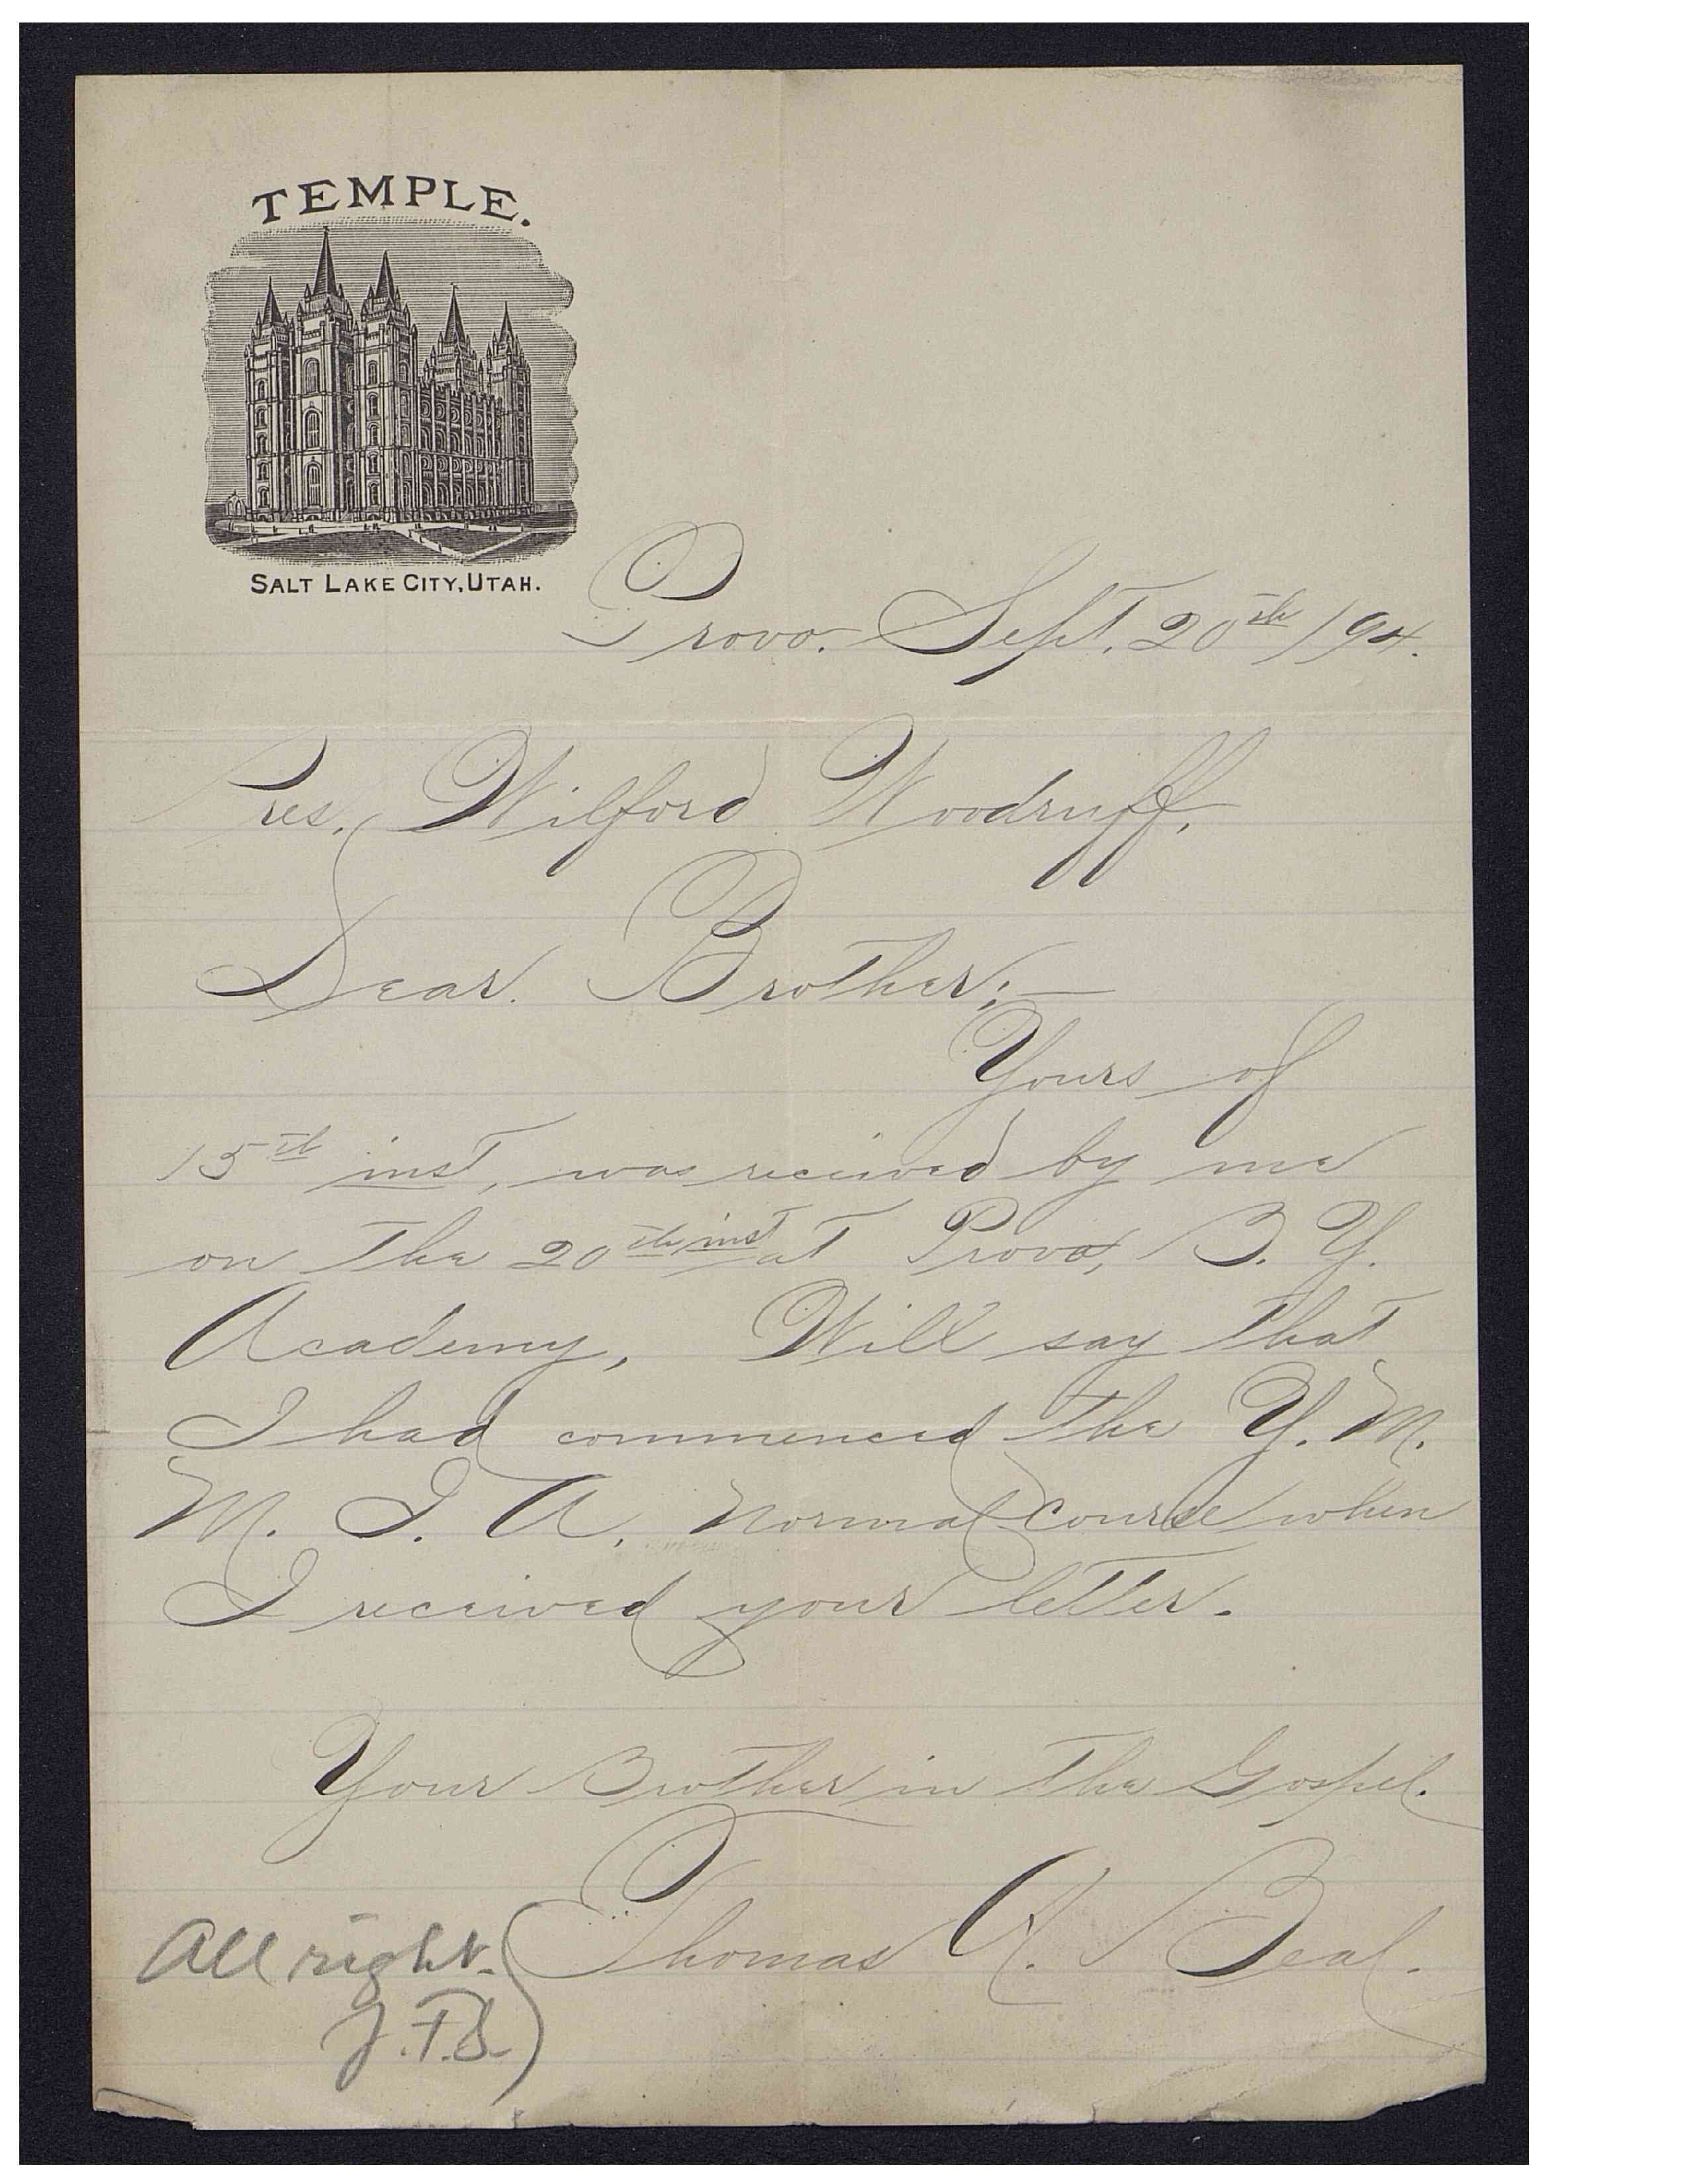 TEMPLE.
SALT LAKE CITY, UTAH.
Provo. Sept. 20th /94.
Pres. Wilford Woodruff.
Dear. Brother:—
Yours of
15th inst, was received by me
on the 20th inst at Provo, B. Y.
Academy, Will say that
I had commenced the Y. M.
M. I. A. Normal Course when
I received your letter.
Your Brother in the Gospel.
Thomas A. Beal.
All right.
J.F.S.